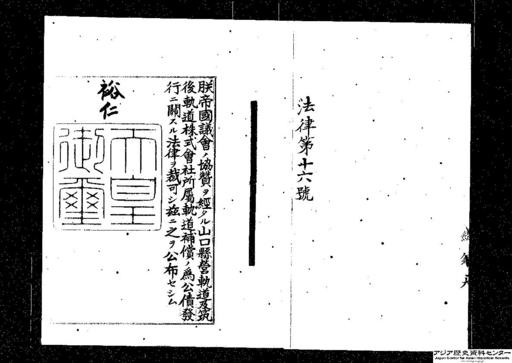 法律第十六號
朕帝國議會ノ協贊ヲ經タル山口縣營軌道及筑
後軌道株式會社所屬軌道補償ノ爲公債發
行ニ關スル法律ヲ裁可シ茲ニ之ヲ公布セシム
裕仁
天皇
御璽
アジア歴史資料センター
Japan Center for Asian Historical Records